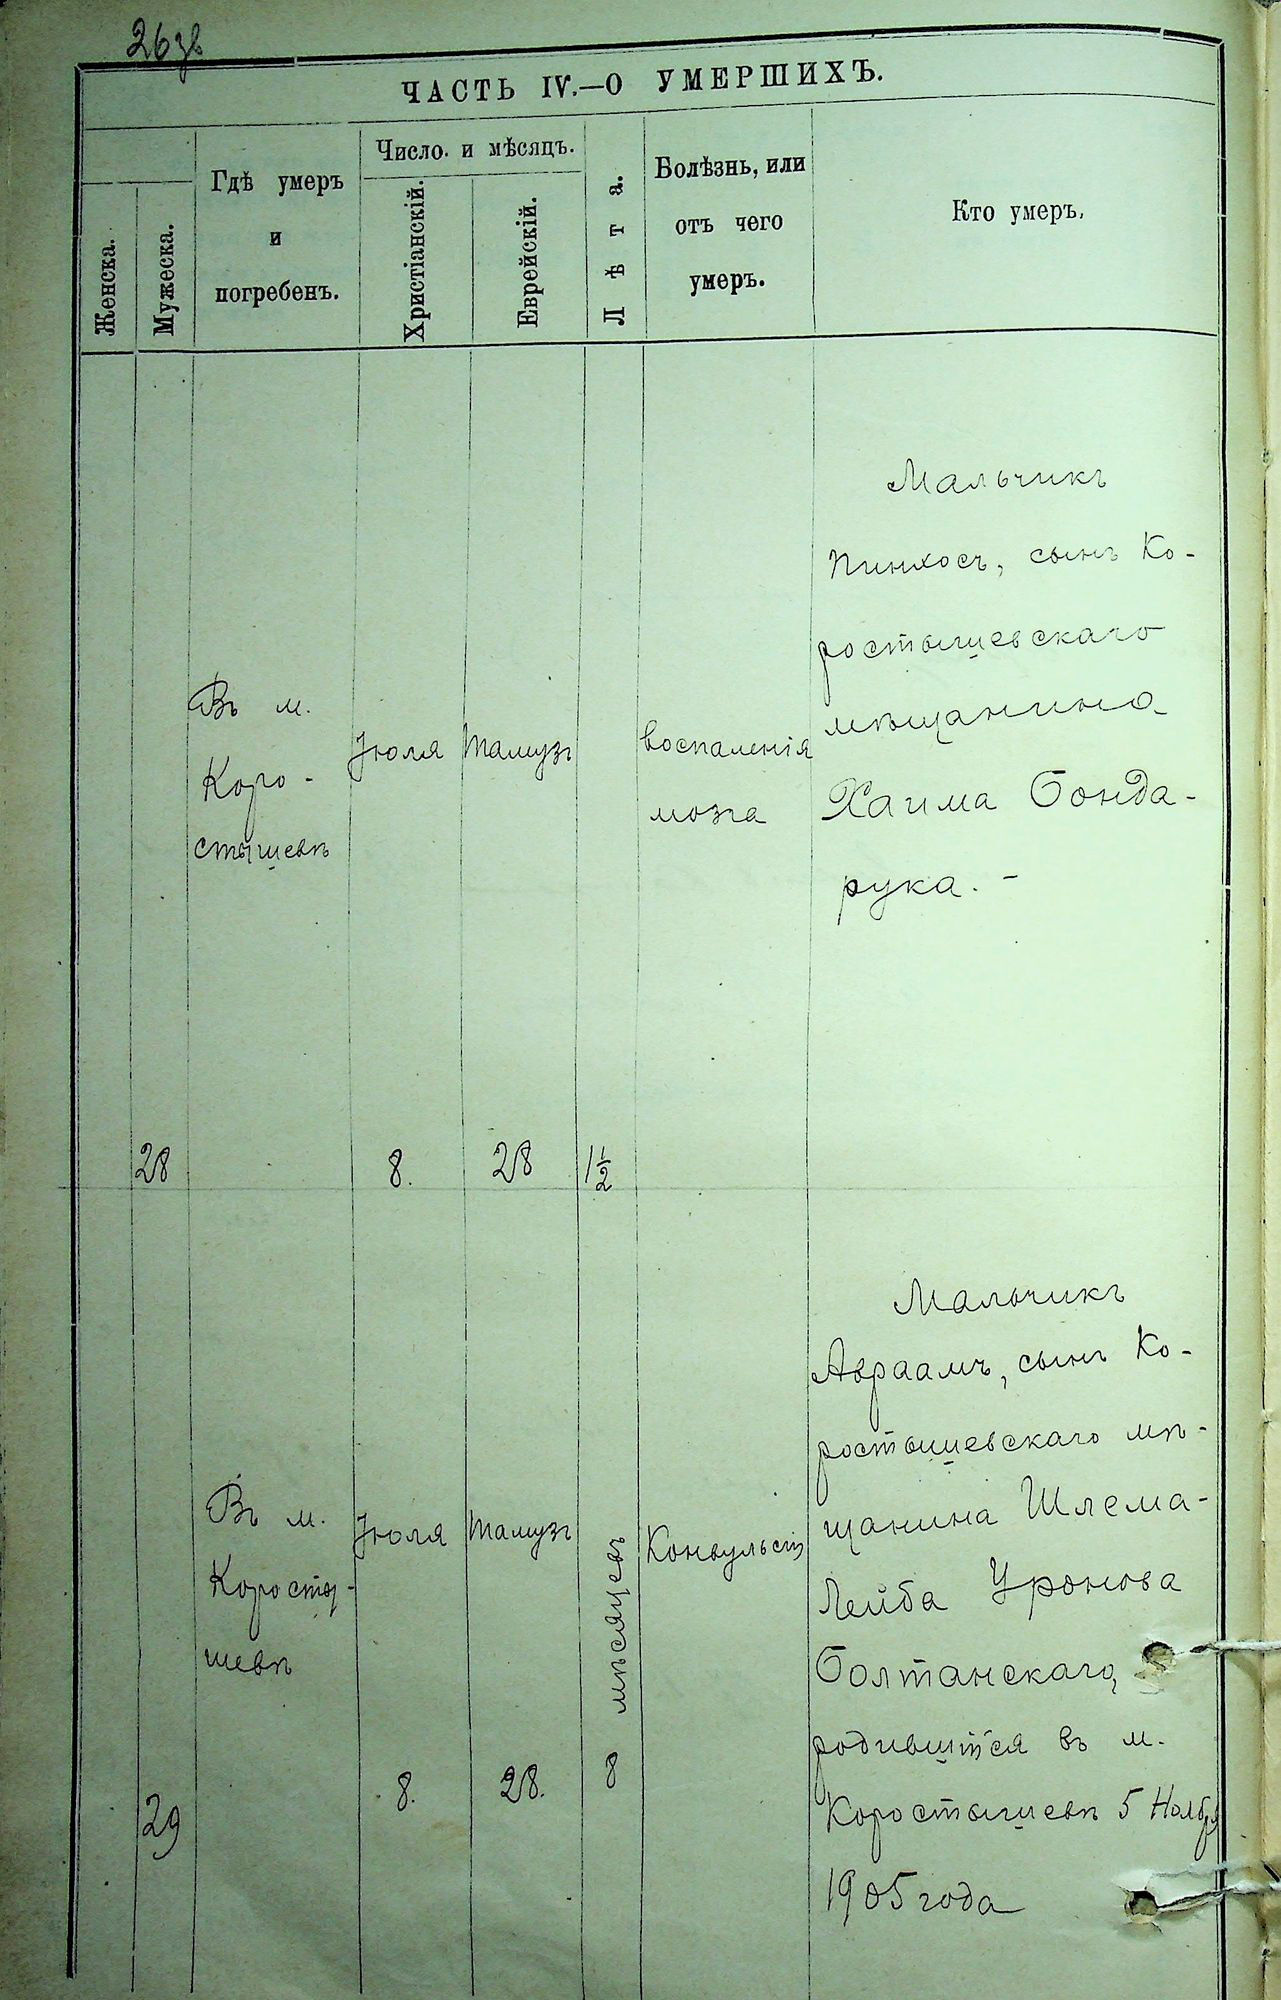 263в
ЧАСТЬ IV.—О УМЕРШИХЪ.
Женска.
Мужеска.
Гдѣ умеръ
и
погребенъ.
Число. и мѣсяцъ.
Христіанскій.
Еврейскій.
Лѣта.
Болѣзнь, или
отъ чего
умеръ.
Кто умеръ.
28
Въ м.
Коро-
стышевѣ
Іюля
8.
Тамузъ
28
1 1/2
воспаленія
мозга
Мальчикъ
Пинхосъ, сынъ Ко-
ростышевскаго
мѣщанина
Хаима Бонда-
рука. -
29
Въ м.
Косты-
шевѣ
Іюля
8.
Тамузъ
28.
8 мѣсяцевъ
Конвульсіи
Мальчикъ
Авраамъ, сынъ Ко-
ростышевскаго мѣ-
щанина Шлема-
Лейба Уронова
Болтанскаго,
родившійся въ м.
Коростышевѣ 5 Ноября
1905 года